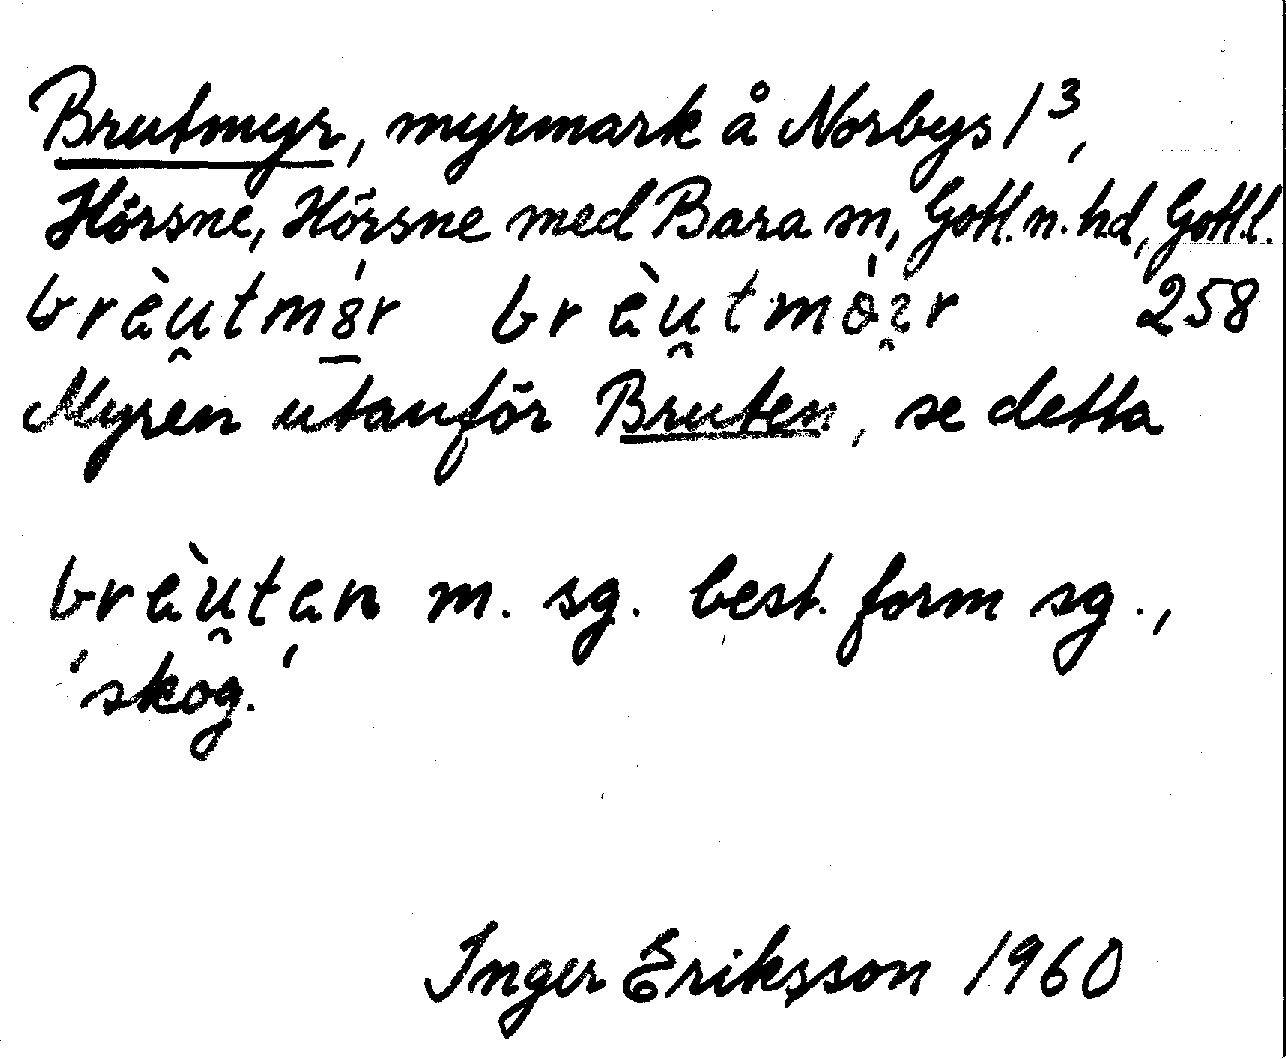 Brutmyr, myrmark å Norbys 1³,
Hörsne, Hörsne med Bara sn, Gotl. n. hd, Gotl.l.
258
Myren utanför Bruten, se detta
bràu̯tan m. sg. best. form sg.,
'skog.'
Inger Eriksson 1960